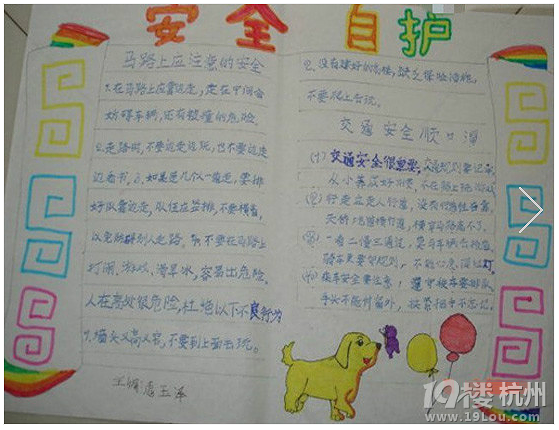 安全自护
马路上应注意的安全
1.在马路上应靠边走,走在中间会
妨碍车辆,还有被撞的危险。
2.走路时,不要边走边玩,也不要边走
边看书。3.如果是几个人一起走,要排
好队靠边走,队伍应竖排,不要横着,
以免妨碍别人走路。不要在马路上
打闹、游戏、滑旱冰,容易出危险。
人在高处很危险,杜绝以下不良行为
1.墙头又高又窄,不要到上面去玩。
2.没有建好的高楼,缺乏保险措施,
不要爬上去玩。
交通安全顺口溜
(1)交通安全很重要,交通规则要记牢,
从小养成好习惯,不在路上玩
(2)行走应走人行道,没有行道往右靠,
天桥地道横行道,横穿马路离不了。
(3)一看二慢三通过,
骑车更要守规则,不能心急闯红灯。
(4)乘车安全要注意,遵守秩序要排队,
手头不能伸窗外,扶紧把手不忘记。
19楼 杭州
www.19lou.com